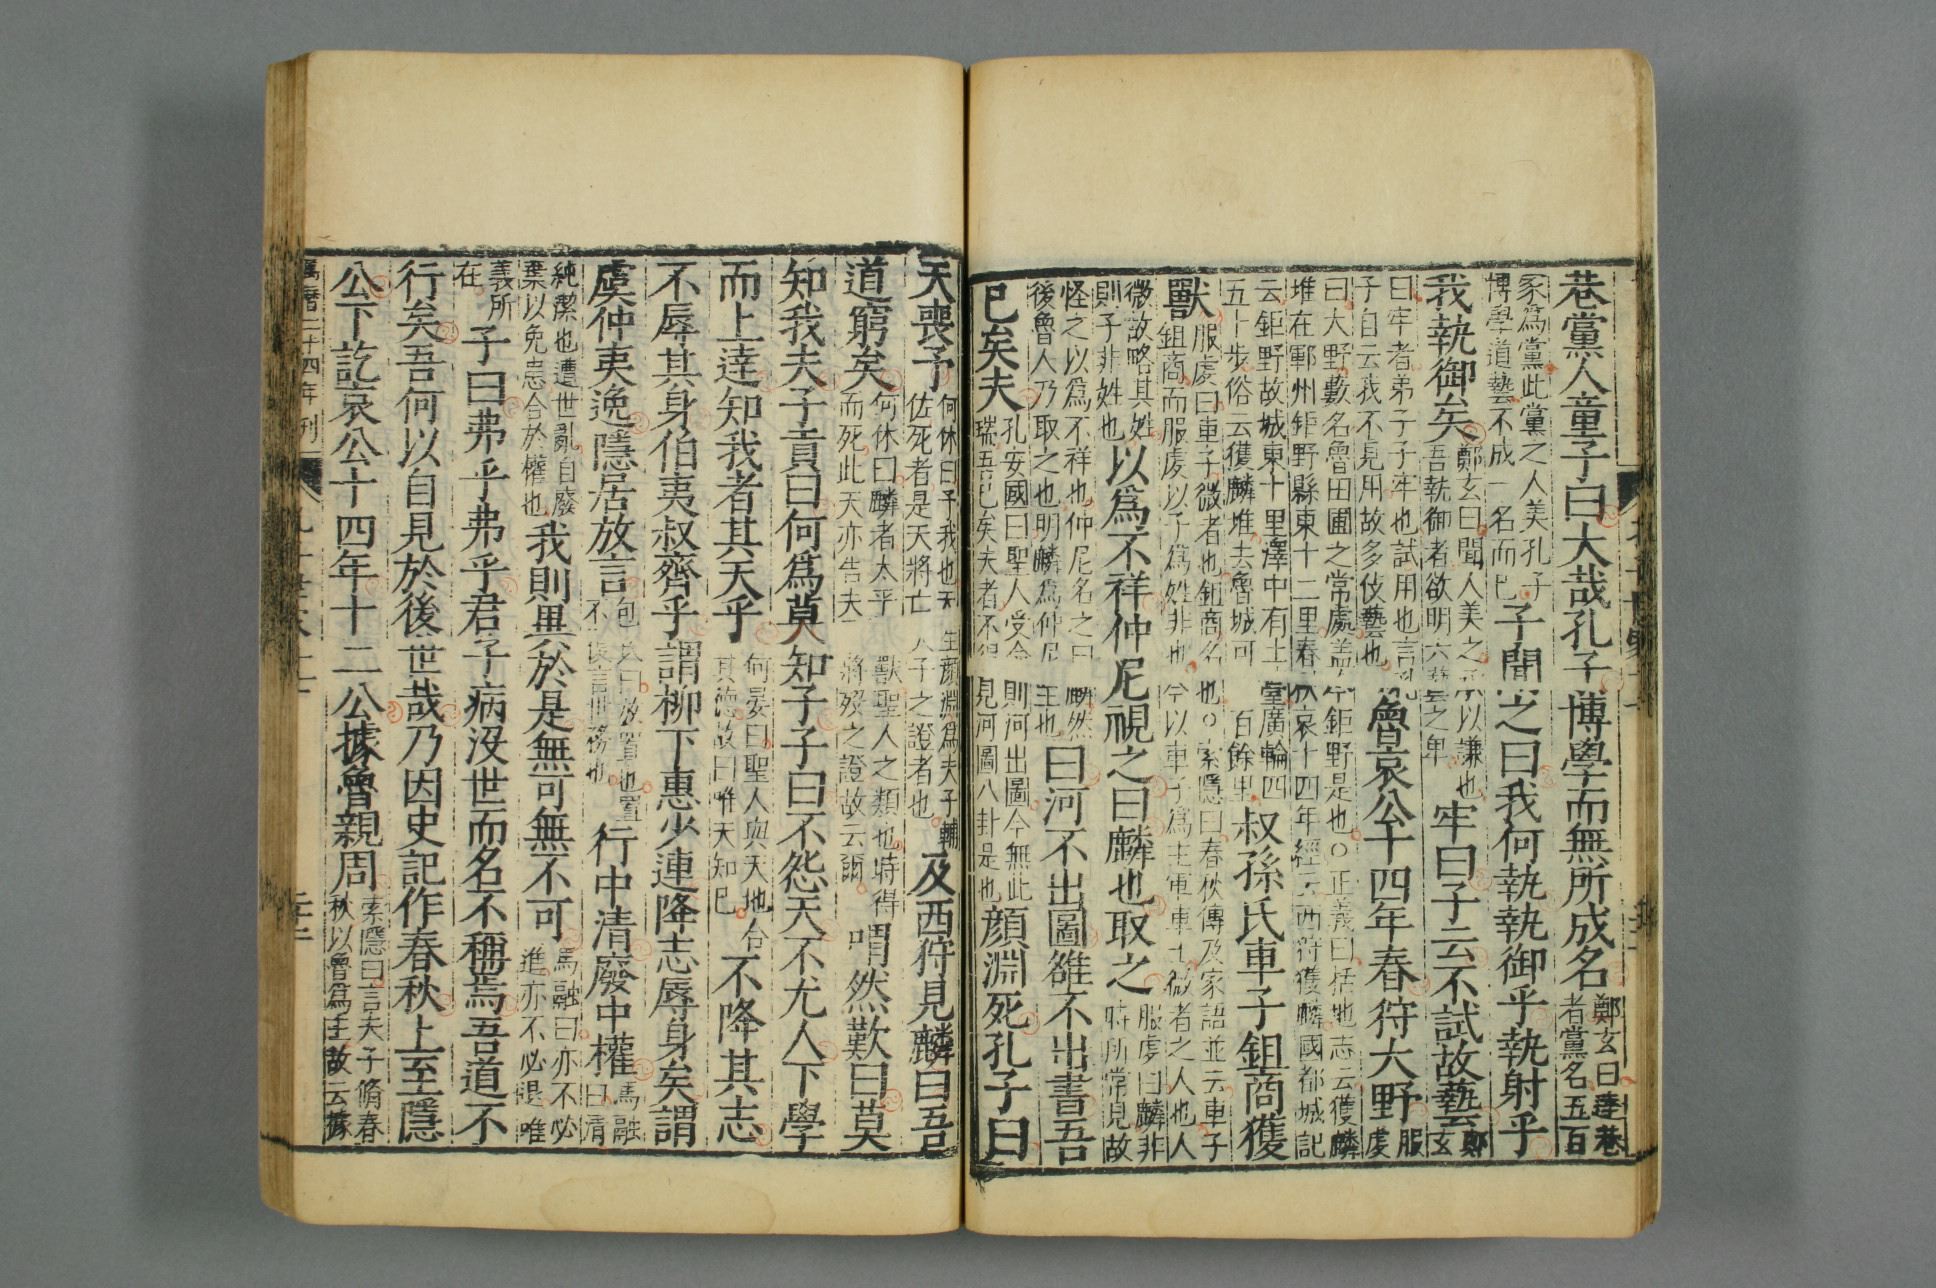 巷黨人童子曰大哉孔子博學而無所成名鄭玄曰達巷者黨名五百
家爲黨此黨之人美孔子博學道藝不成一名而已子聞之曰我何執執御乎執射乎
我執御矣鄭玄曰聞人美之承以謙也吾執御者欲明六藝之卑牢曰子云不試故藝鄭玄
曰牢者弟子子牢也試用也言孔子自云我不見用故多伎藝也魯哀公十四年春狩大野服虔
曰大野藪名魯田圃之常處蓋今鉅野是也○正義曰括地志云獲麟堆在鄆州鉅野縣東十二里春秋哀十四年經云西狩獲麟國都城記
云鉅野故城東十里澤中有土臺廣輪四五十步俗云獲麟堆去魯城可百餘里叔孫氏車子鉏商獲
獸服虔曰車子微者也鉏商名也○索隱曰春秋傳及家語並云車子鉏商而服虔以子爲姓非也今以車子爲主車車士微者之人也人
微故略其姓則子非姓也以爲不祥仲尼視之曰麟也取之服虔曰麟非時所常見故
怪之以爲不祥也仲尼名之曰麟然後魯人乃取之也明麟爲仲尼至也曰河不出圖雒不出書吾
已矣夫孔安國曰聖人受命則河出圖今無此瑞吾已矣夫者不得見河圖八卦是也顏淵死孔子曰
天喪予何休曰予我也天生顏淵爲夫子輔佐死者是天將亡夫子之證者也及西狩見麟曰吾
道窮矣何休曰麟者太平獸聖人之類也時得而死此天亦告夫將歿之證故云爾喟然歎曰莫
知我夫子貢曰何爲莫知子子曰不怨天不尤人下學
而上達知我者其天乎何晏曰聖人與天地合其德故曰唯天知己不降其志
不辱其身伯夷叔齊乎謂柳下惠少連降志辱身矣謂
虞仲夷逸隱居放言包氏曰放置也置不復言世務也行中清廢中權馬融曰清
純潔也遭世亂自廢棄以免患合於權也我則異於是無可無不可馬融曰亦不必進亦不必退唯
義所在子曰弗乎弗乎君子病沒世而名不稱焉吾道不
行矣吾何以自見於後世哉乃因史記作春秋上至隱
公下訖哀公十四年十二公據魯親周索隱曰言夫子脩春秋以魯爲主故云據
萬曆二十四年刊